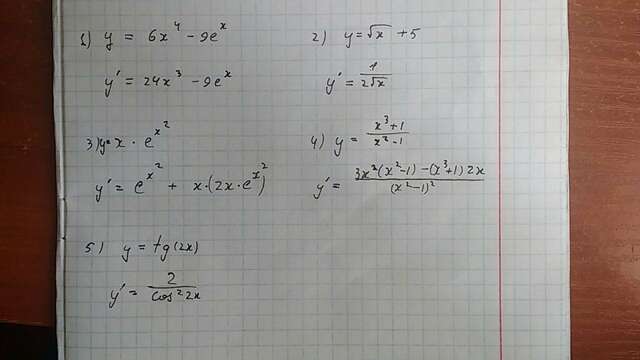 1) y = 6x⁴ - 9eˣ
y' = 24x³ - 9eˣ
2) y = √x + 5
y' = 1/(2√x)
3) y = x · e^(x²)
y' = e^(x²) + x·(2x·e^(x²))
4) y = (x³+1)/(x²-1)
y' = (3x²(x²-1) - (x³+1)2x)/((x²-1)²)
5) y = tg(2x)
y' = 2/(cos²2x)